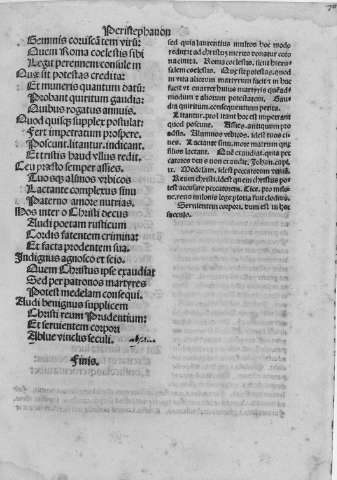 Peristephanon
Gemmis coruscãtem viru:
Quem Roma coelestis sibi
Legit perennem consulem
Que sit potestas credita:
Et muneris quantum datũ:
Probant quiritum gaudia:
Quibus rogatus annuis.
Quod quisq; supplex postulat:
Fert impetratum prospere.
Poscunt, litantur, indicant.
Et tristis haud ullus redit.
Ceu praesto semper assies.
Tuosq; alũnos vrbicos
Lactante complexus sinu
Paterno amore nutrias.
Hos inter o Christi decus
Audi poetam rusticum
Cordis fatentem crimina:
Et facta prodentem sua.
Indignus agnosco et scio.
Quem Christus ipse exaudiat
Sed per patronos martyres
Potest medelam consequi.
Audi benignus supplicem
Christi reum Prudentium:
Et seruientem corpori
Absolue vinclis seculi.
Finis.
sed quia laurentius multos hoc modo
reddit et ad christũ
nacinitta. Roma coelestis, id est hieru-
salem coelestis. Que sit potestas, quod
in vita alicem martyrum facit in hoc
Gau-
dia quiritum, consequenti
Litantur, pro litant hoc est impetrant
quod poscunt. Assies, antiquum pro
adsis. Alumnos vrbicos, idest tuos ci-
ues. Lactante sinu, more matrum quę
filium lactant. Quẽ exaudiat, quia pec-
catores deus non exaudit, Johan. capi.
ix. Medelam, idest peccatorum veniã.
Reum christi, idest quem christus pot
est accusare peccatorem. Cice. pro milo-
ne, reus milonis lege plotia fuit clodius.
Seruientem corpori, dum est in hoc
seculo.